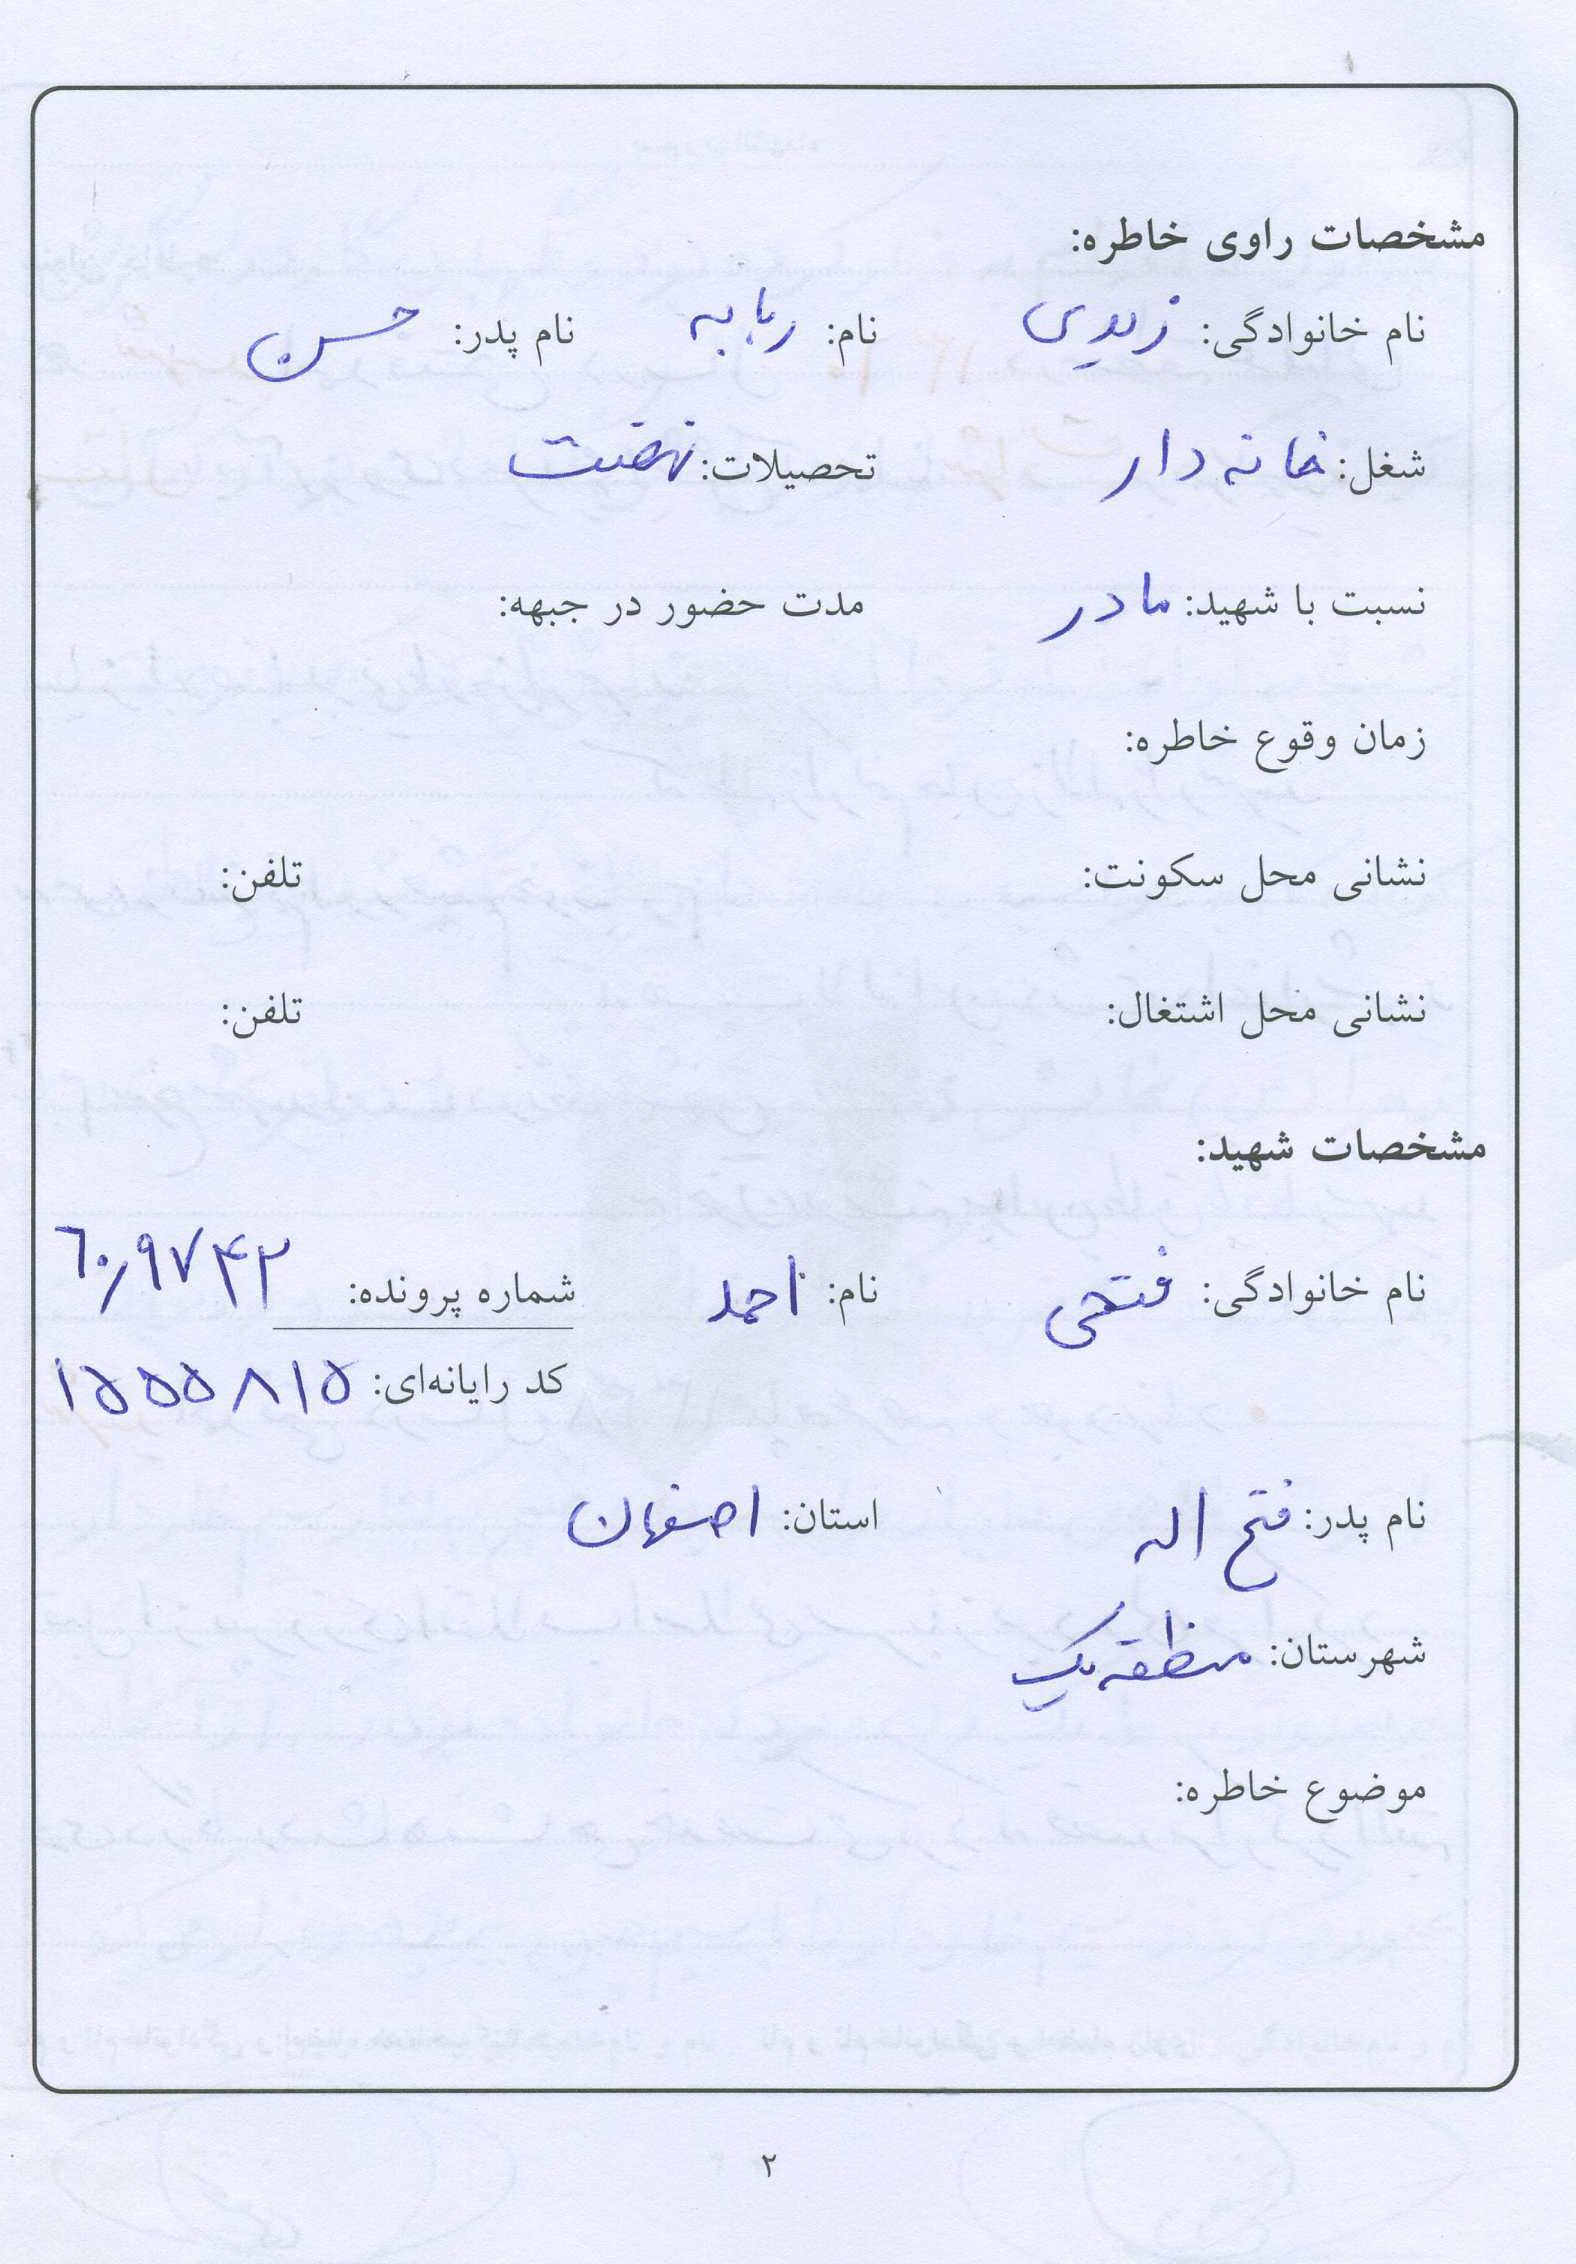 مشخصات راوی خاطره:
نام خانوادگی: زیدی نام: ربابه نام پدر: حسن
شغل: خانه دار تحصیلات: نهضت
نسبت با شهید: مادر مدت حضور در جبهه:
زمان وقوع خاطره:
نشانی محل سکونت: تلفن:
نشانی محل اشتغال: تلفن:
مشخصات شهید:
نام خانوادگی: فتحی نام: احمد شماره پرونده:
کد رایانه‌ای: ۱۵۵۵۸۱۵
نام پدر: فتح اله استان: اصفهان
شهرستان: منطقه یک
موضوع خاطره:
۲